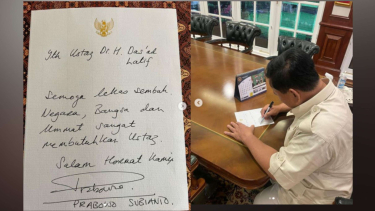 Yth Ustaz Dr. H. Das'ad
Latif
Semoga lekas sembuh
Negara, Bangsa dan
Ummat sangat
membutuhkan Ustaz.
Salam Hormat Kami
Prabowo
PRABOWO SUBIANTO